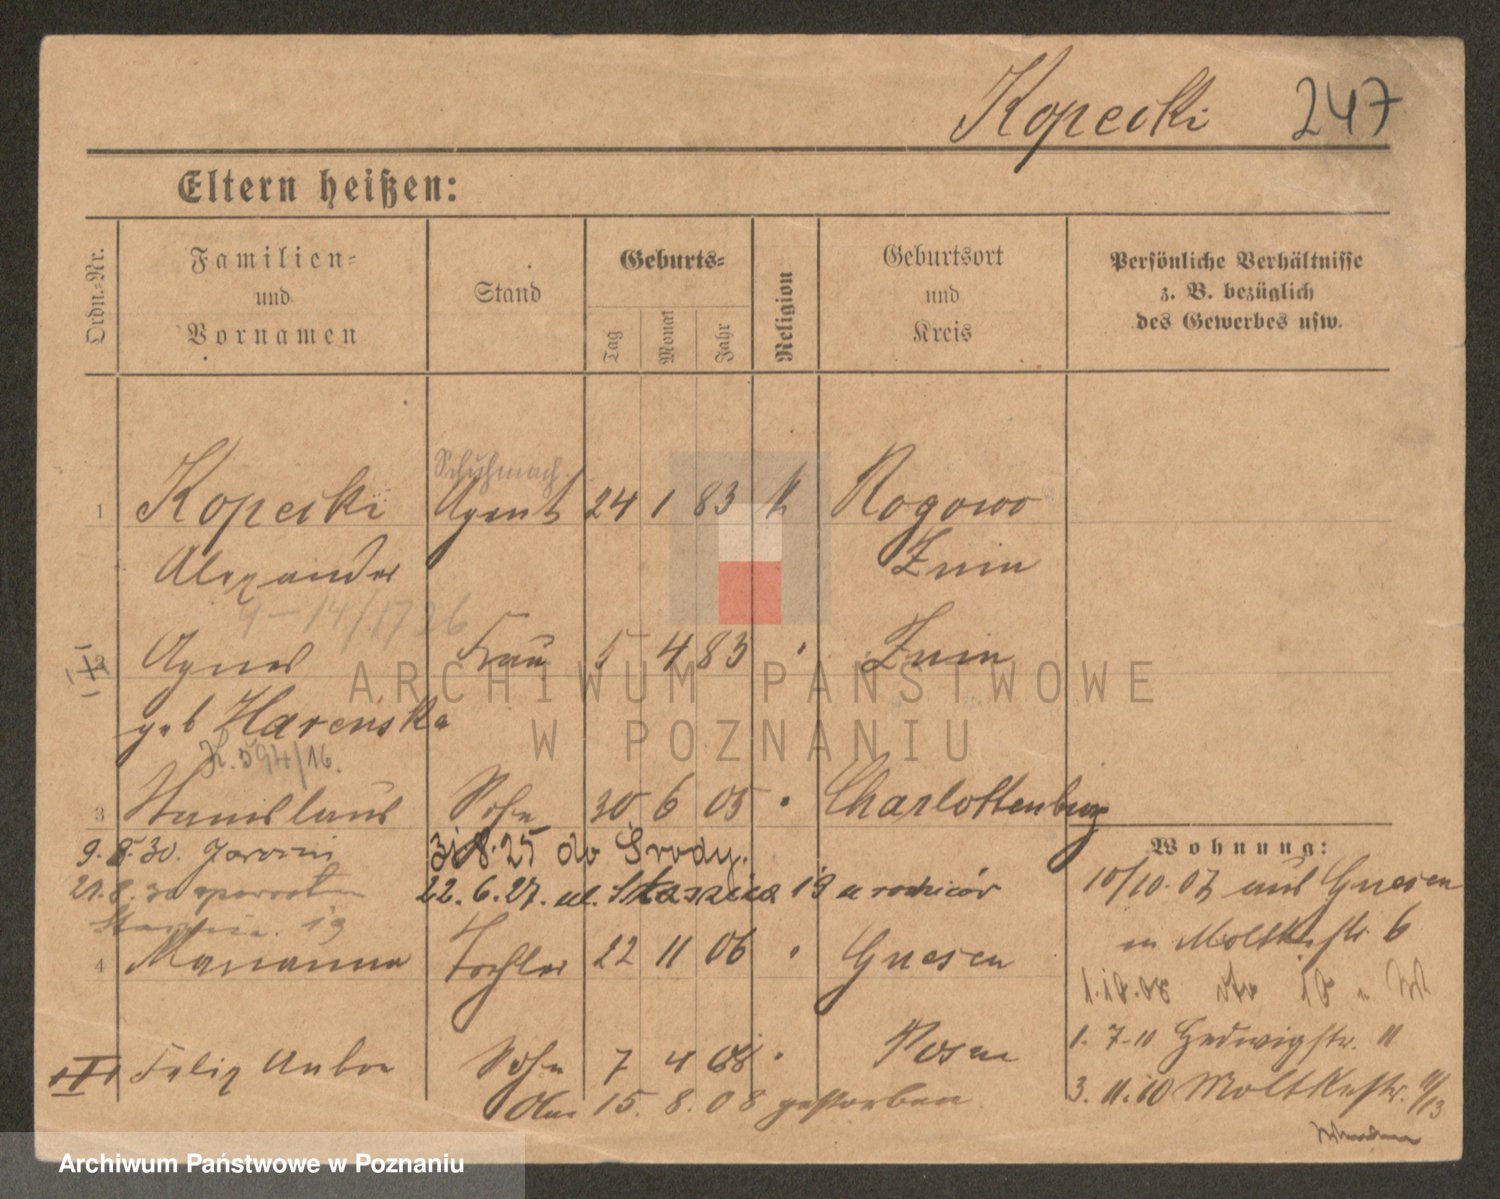 Kopecki 247
Eltern heißen:
Ordn.-Nr.
Familien- und Vornamen
Stand
Geburts-
Tag Monat Jahr
Religion
Geburtsort und Kreis
Persönliche Verhältnisse z. B. bezüglich des Gewerbes usw.
Schuhmach.
1 Kopecki Agent 24 1 83 k Rogowo
Alexander Znin
9-14/17 26
2 Agnes Frau 5 4 83 " Znin
geb Harenska
K. 594/16.
3 Stanislaus Sohn 30 6 05 " Charlottenburg
9.8.30. Jarocin 31.8.25 do Środy.
21.8.30 22.6.27. ul. Staszica 19 u rodziców
19
4 Marianna Tochter 22 11 06 " Gnesen
Felix Anton Sohn 7 4 08 " Posen
Am 15. 8. 08 gestorben
Wohnung:
10/10.07 aus Gnesen
in Moltkestr. 6
1. 7. 10 Hedwigstr. 11
3. 11. 10 Moltkestr.
ARCHIWUM PAŃSTWOWE
W POZNANIU
Archiwum Państwowe w Poznaniu